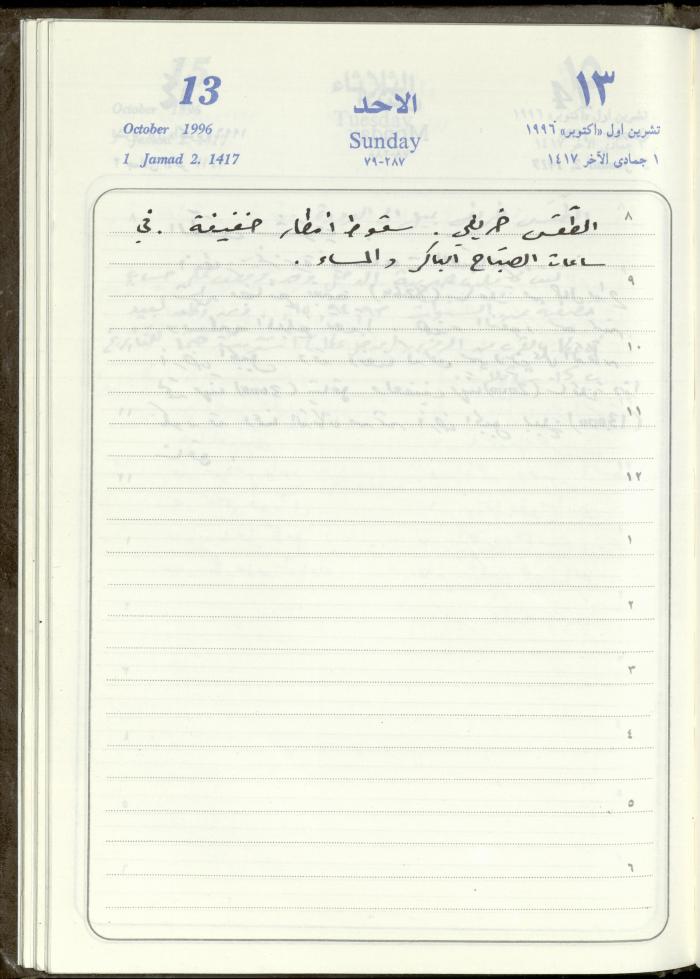 13
October 1996
1 Jamad 2. 1417
الاحد
Sunday
٧٩-٢٨٧
١٣
تشرين اول «اكتوبر» ١٩٩٦
١ جمادى الآخر ١٤١٧
٨
الطقس خريفي . سقوط امطار خفيفة . في
ساعات الصباح الباكر والمساء .
٩
١٠
١١
١٢
١
٢
٣
٤
٥
٦